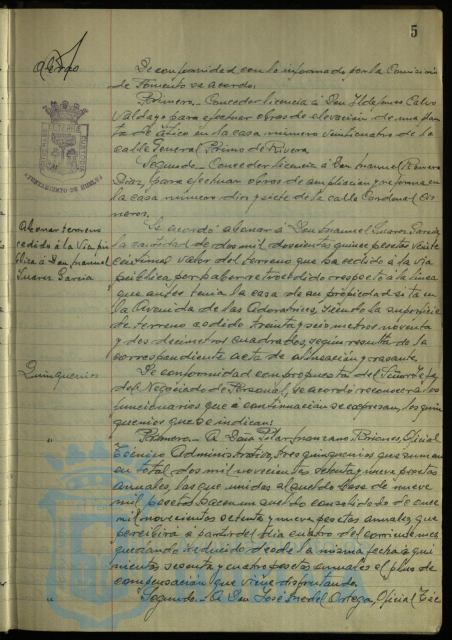 5
De conformidad con lo informado por la Comisión
de Fomento se acordó:
Primero.- Conceder licencia á Don Ildefonso Calvo
Valdayo para efectuar obras de elevación de una plan
ta de ático en la casa número veinticuatro de la
calle General Primo de Rivera
Segundo.- Conceder licencia á Don Manuel Romero
Díaz, para efectuar obras de ampliación y reforma en
la casa número diez y siete de la calle Cardenal Cis
neros.
AYUNTAMIENTO DE HUELVA
Abonar terreno
cedido á la Vía pú
blica á Don Manuel
Suarez García
Se acordó abonar á Don Manuel Suarez García
la cantidad de dos mil doscientas quince pesetas veinte
céntimos valor del terreno que ha cedido á la vía
pública por haber retrocedido respecto á la línea
que antes tenía la casa de su propiedad sita en
la Avenida de las Adoratrices, siendo la superficie
de terreno cedido treinta y seis metros noventa
y dos decímetros cuadrados, según resulta de la
correspondiente acta de alineación y rasante.
Quinquenios
De conformidad con propuesta del Señor
del Negociado de Personal, se acordó reconocer á los
funcionarios que á continuación se expresan, los quin
quenios que se indican:
" Primero.- A Doña Pilar Manzano Briones, Oficial
Técnico Administrativo, tres quinquenios que suman
en total dos mil novecientas setenta y nueve pesetas
anuales, las que unidas al sueldo base de nueve
mil pesetas hacen un sueldo consolidado de once
mil novecientas setenta y nueve pesetas anuales que
percibirá a partir del día cuatro del corriente mes,
quedando reducido desde la misma fecha á qui
nientas sesenta y cuatro pesetas anuales el plus de
compensación que viene disfrutando.
" Segundo.- A Don José Ortega, Oficial Téc